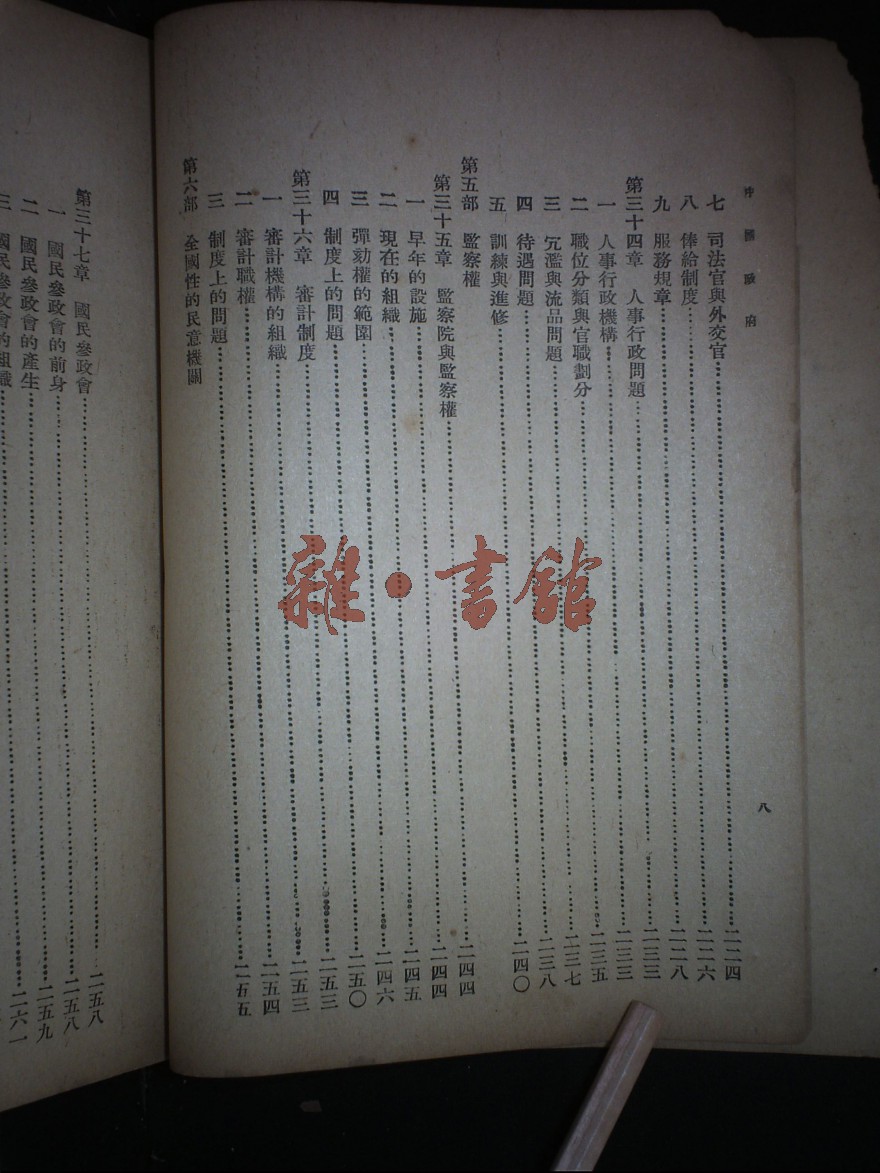 中國政府
八
七 司法官與外交官……二二四
八 俸給制度……二二六
九 服務規章……二二八
第三十四章 人事行政問題……二三三
一 人事行政機構……二三三
二 職位分類與官職劃分……二三五
三 冗濫與流品問題……二三七
四 待遇問題……二三八
五 訓練與進修……二四〇
第五部 監察權
第三十五章 監察院與監察權……二四四
一 早年的設施……二四四
二 現在的組織……二四五
三 彈劾權的範圍……二四六
四 制度上的問題……二五〇
第三十六章 審計制度……二五三
一 審計機構的組織……二五三
二 審計職權……二五四
三 制度上的問題……二五五
第六部 全國性的民意機關
第三十七章 國民參政會……二五八
一 國民參政會的前身……二五八
二 國民參政會的產生……二五九
三 國民參政會的組織……二六一
雜·書館